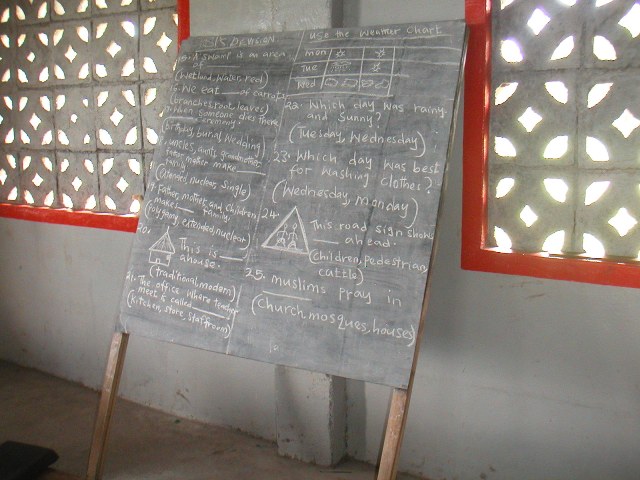 swamp is an area
(wetland, water, red)
We eat ___ of carrots
(branches, root, leaves)
someone dies there
is ___ ceremony
(Birthday, burial, Wedding)
uncles, aunts, grandmother
make ___
family
(extended, nuclear, single)
Father, mother, and children
make ___ family
(extended, nuclear)
20.
This is ___
a house.
(traditional, modern)
21. The office where teachers
meet is called ___
(kitchen, store, staffroom)
Use the weather chart
mon
Tue
Wed
22. Which day was rainy
and sunny?
(Tuesday, Wednesday)
23. Which day was best
for washing clothes?
(Wednesday, Monday)
24.
This road sign shows
___ ahead.
(children, pedestrian,
cattle)
25. muslims pray in
(church, mosques, houses)